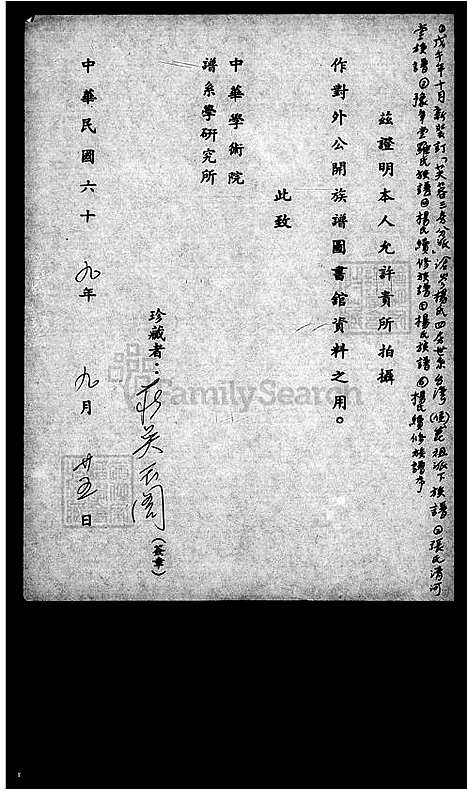 ①戊午年十月新裝訂「芙蓉三房分派 滄岑楊氏四房世系 台灣 派下族譜 ②張氏清河
堂族譜 ③豫章堂羅氏族譜 ④楊氏續修族譜 ⑤楊氏族譜 ⑥楊氏續修族譜序
茲證明本人允許貴所拍攝
作對外公開族譜圖書館資料之用。
此致
中華學術院
譜系學研究所
珍藏者：（簽章）
中華民國六十九年九月廿五日
FamilySearch